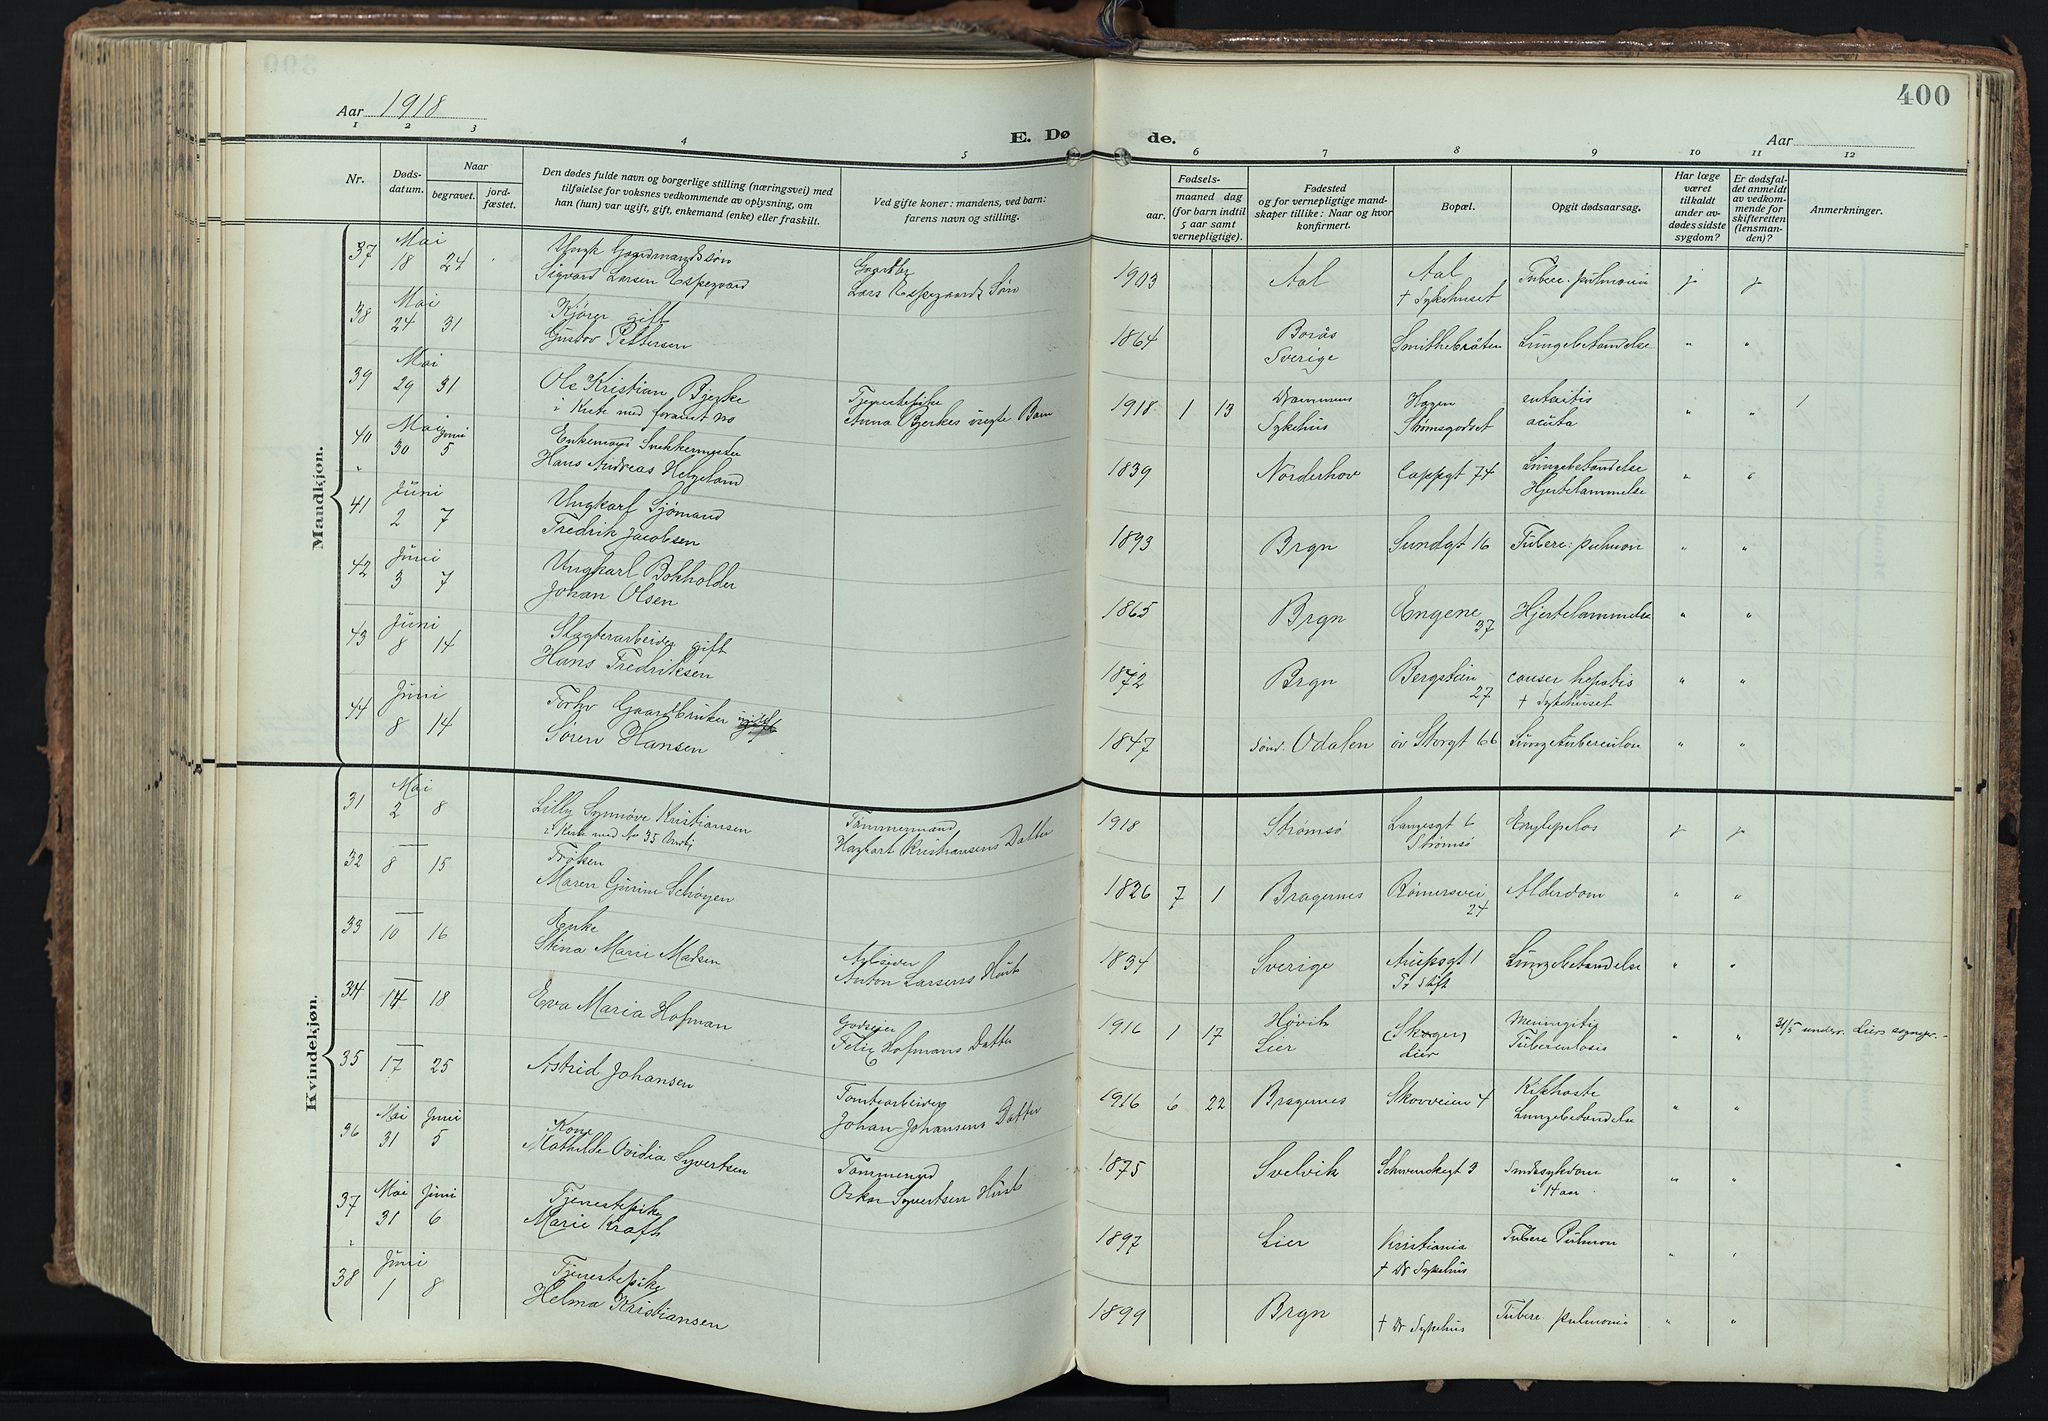 400
Aar 1918
E. Dø de.
Aar
1 2 3 4 5 6 7 8 9 10 11 12
Nr.
Døds-
datum.
Naar
begravet.
jord-
fæstet.
Den dødes fulde navn og borgerlige stilling (næringsvei) med
tilføielse for voksnes vedkommende av oplysning, om
han (hun) var ugift, gift, enkemand (enke) eller fraskilt.
Ved gifte koner: mandens, ved barn:
farens navn og stilling.
Fødsels-
aar.
maaned dag
(for barn indtil
5 aar samt
vernepligtige).
Fødested
og for vernepligtige mand-
skaper tillike: Naar og hvor
konfirmert.
Bopæl.
Opgit dødsaarsag.
Har læge
været
tilkaldt
under av-
dødes sidste
sygdom?
Er dødsfal-
det anmeldt
av vedkom-
mende for
skifteretten
(lensman-
den)?
Anmerkninger.
Mandkjøn.
37 Mai 18 24 Gaardmandssøn
Sigvard Larsen Espegaard
Gaardbr
Lars Espegaards Søn
1903 Aal Aal
† Sykehuset
Tuberc. pulmonū j j
38 Mai 24 31 Kjører gift
Gustov Pettersen
1864 Borås
Sverige
Smithebråten Lungebetændelse " "
39 Mai 29 31 Ole Kristian Bjerke
i Kiste med
Tjenestepike
Anna Bjerkes uegte Barn
1918 1 13 Drammens
Sykehus
Hagen
Strømsgodset
acuta " " 1
40 Mai 30 Juni 5 Enkemand Snekkermester
Hans Andreas Helgeland
1839 Norderhov Cappgt 74 Lungebetændelse
Hjertelammelse " "
41 Juni 2 7 Ungkarl Sjømand
Fredrik Jacobsen
1893 Brgn Sundgt 16 Tuberc: pulmon " "
42 Juni 3 7 Ungkarl Bokholder
Johan Olsen
1865 Brgn Engene
37
Hjertelammelse " "
43 Juni 8 14 Slagterarbeider gift
Hans Fredriksen
1872 Brgn Bergstien
27
cancer hepatis
† Sykehuset " "
44 Juni 8 14 Forhv Gaardbruker
Søren Hansen
1847 Sønd. Odalen øv Storgt 66 Lungetuberculose " "
Kvindekjøn.
31 Mai 2 8 Lilly Synnøve Kristiansen
i Kiste med No 35
Tømmermand
Hagbart Kristiansens Datter
1918 Strømsø Langesgt 6
Strømsø
Erysipelas j j
32 — 8 15 Frøken
Maren Gurine Schøyen
1826 7 1 Bragernes Rømersvei
24
Alderdom " "
33 — 10 16 Enke
Stina Marie Madsen
Arbeider
Anton Larsens Hust
1834 Sverige
Lungebetændelse " "
34 — 14 18 Eva Maria Hofman
Godseier
Felix Hofmans Datter
1916 1 17 Høvik
Lier
(Skoger)
Lier
Meningitis
Tuberculosis " " 31/5 underr. Liers sogнepr.
35 — 17 25 Astrid Johansen
Tomtearbeider
Johan Johansens Datter
1916 6 22 Bragernes Skovveien 4 Kikhoste
Lungebetændelse " "
36 Mai 31 Juni 5 Kone
Mathilde Ovidia Syvertsen
Tømmermd
Oskar Syvertsen Hust
1875 Svelvik Schwenckegt 3 Sindssykdom
i 14 aar " "
37 Mai 31 Juni 6 Tjenestepike
Marie Krafth
1897 Lier Kristiania
† Dr Sykehus
Tuberc Pulmon " "
38 Juni 1 8 Tjenestepike
Helma Kristiansen
1899 Brgn † Dr Sykehus Tuberc. pulmonū " "